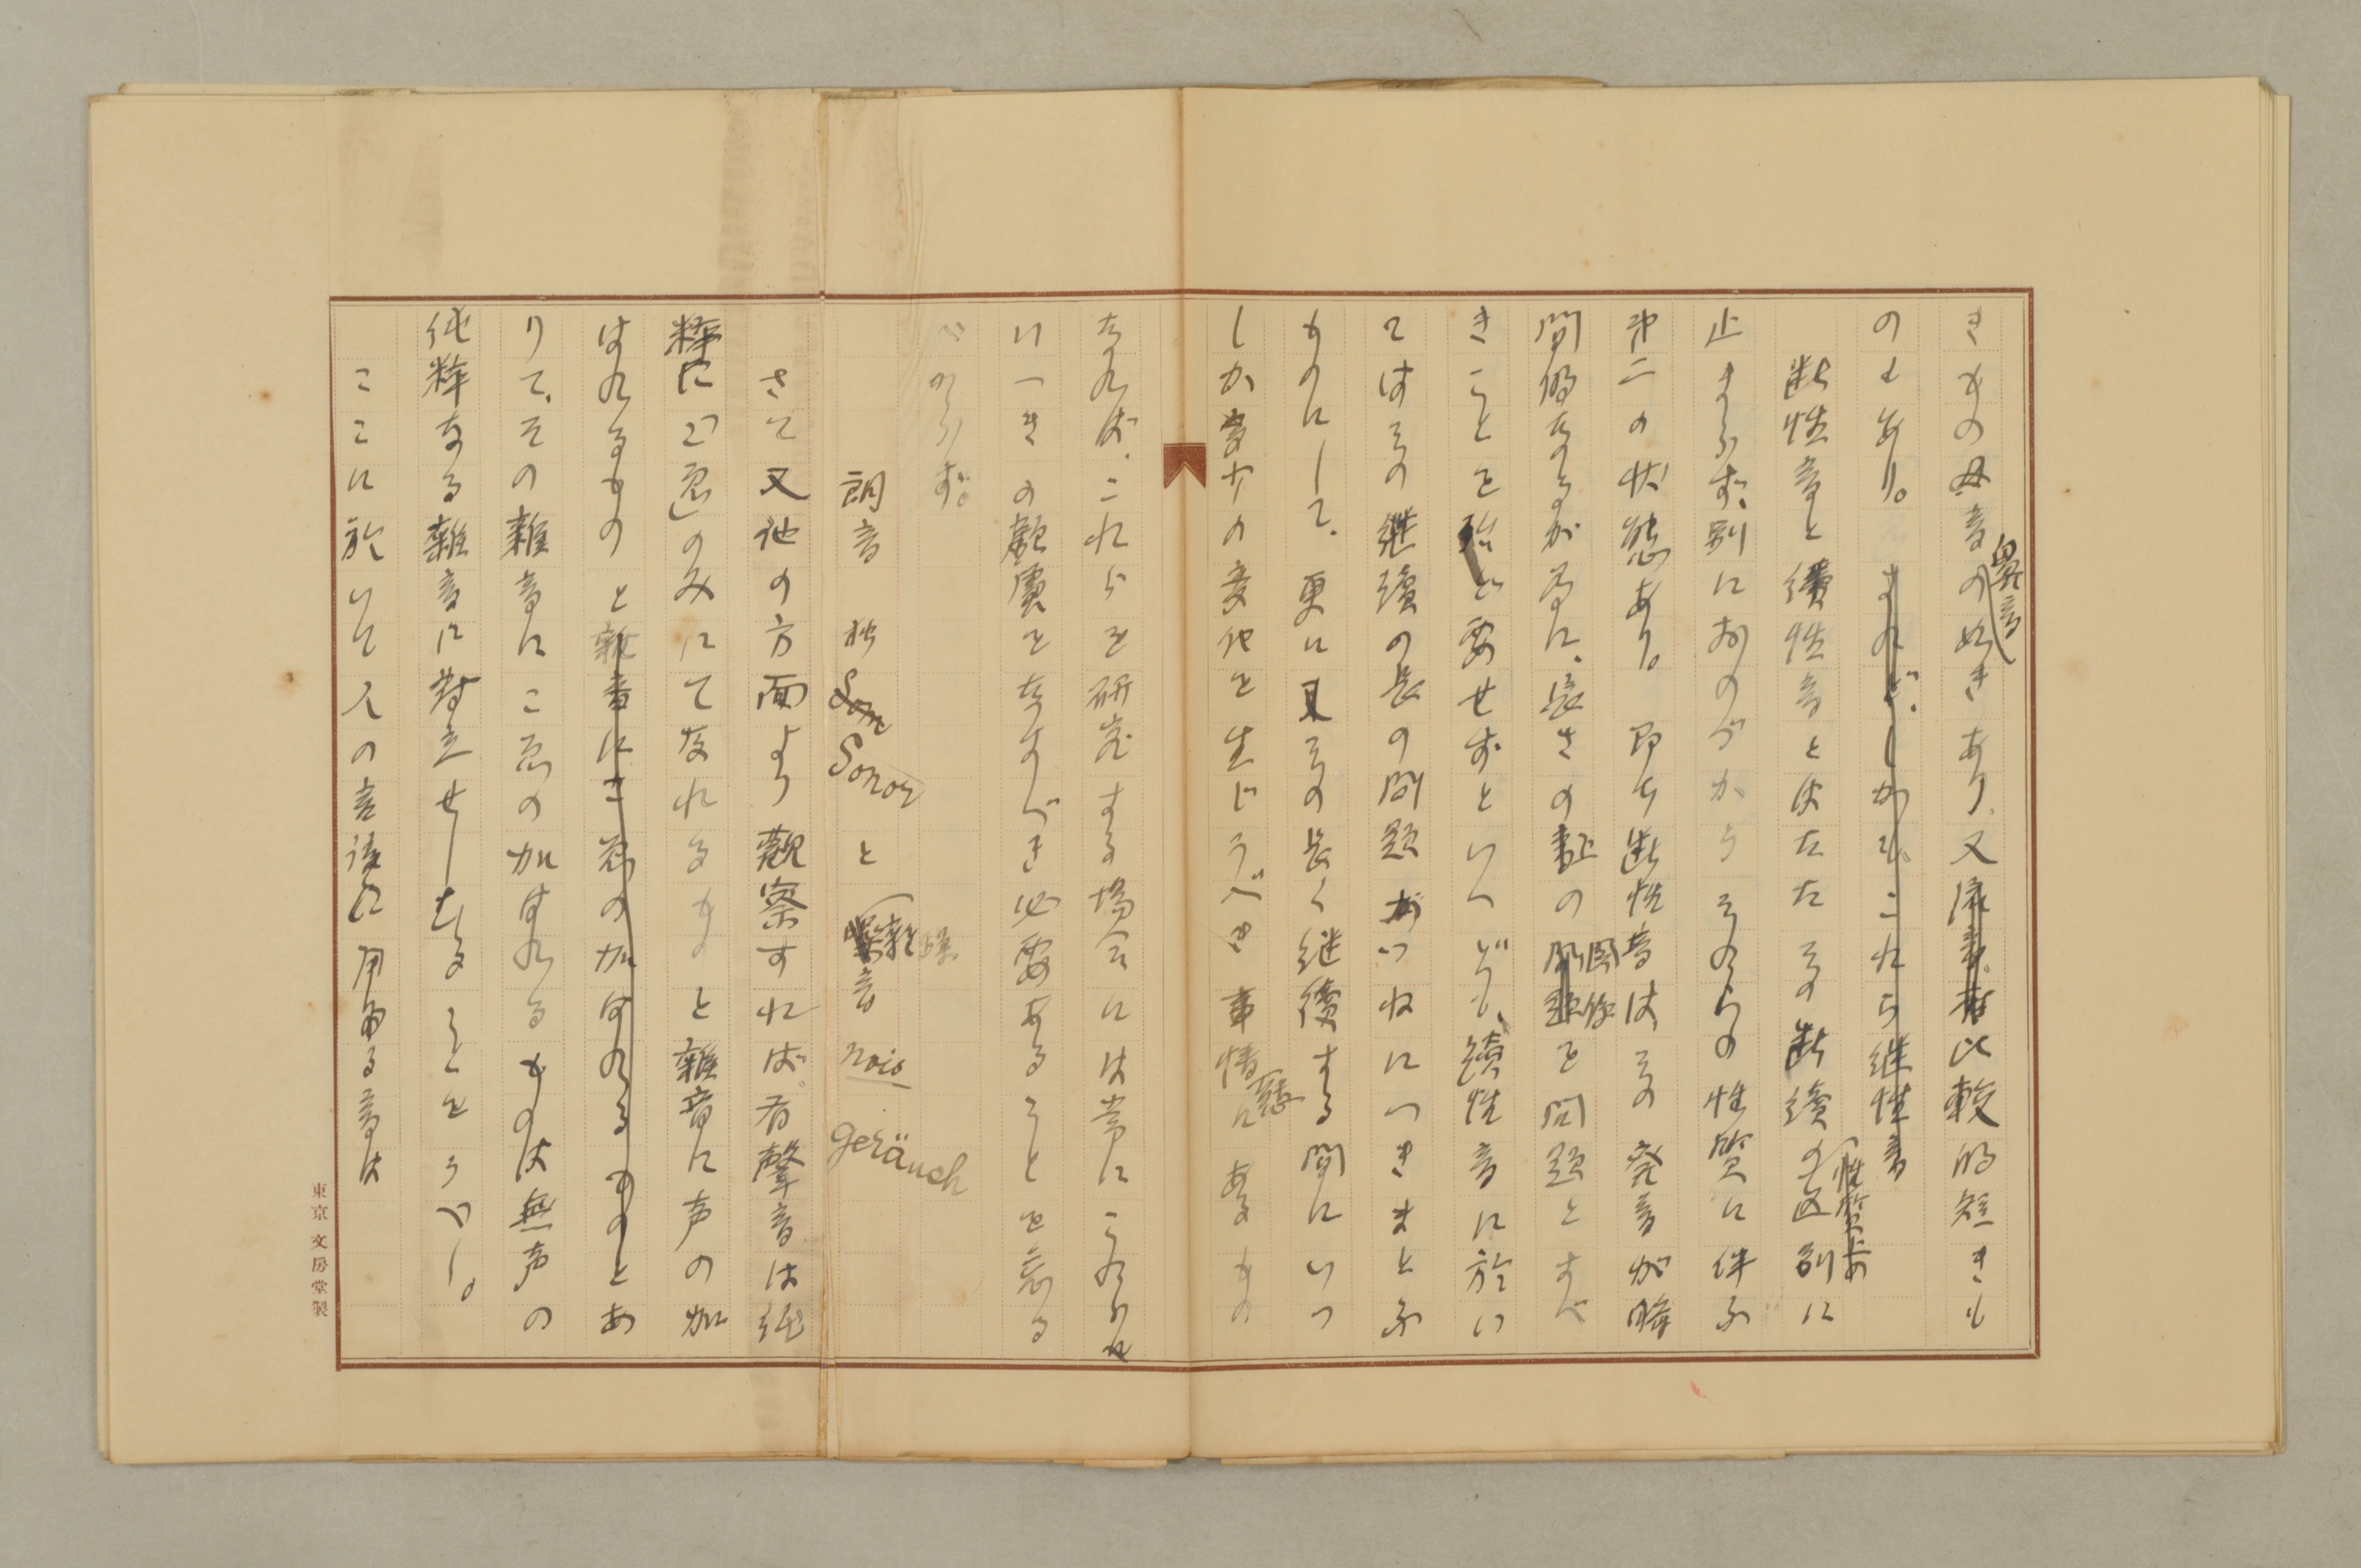 きもの母音の如きあり、又 比較的短きも
鼻音
のもあり。
断性音と續性音とはたたその断續の区別に
止まらず、別におのづからそのらの性質に伴ふ
第二の状態あり。即ち断性音は、その発音が瞬
間的なるが為に、長さの を問題とすべ
きことを殆ど要せずといへども、續性音に於い
てはその継續の長の問題がつねにつきまとふ
ものにして、更に又その長く継續する間にいつ
しか多少の変化を生じうべき事情にあるもの
なれば、これらを研究する場合には常にこれら
につきの顧慮をなすべき必要あることを忘る
べからず。
朗音 Sonor と 音 nois geräusch
さて又他の方面より観察すれば、有聲音は純
粋に「こゑ」のみにて成れるものと雜音に声の加
はれるものとあ
りて、その雜音にこゑの加はれるものは無声の
純粋なる雜音に對立せしむることをうべし。
ここに於いて人の言語に用ゐる音は
東京文房堂製